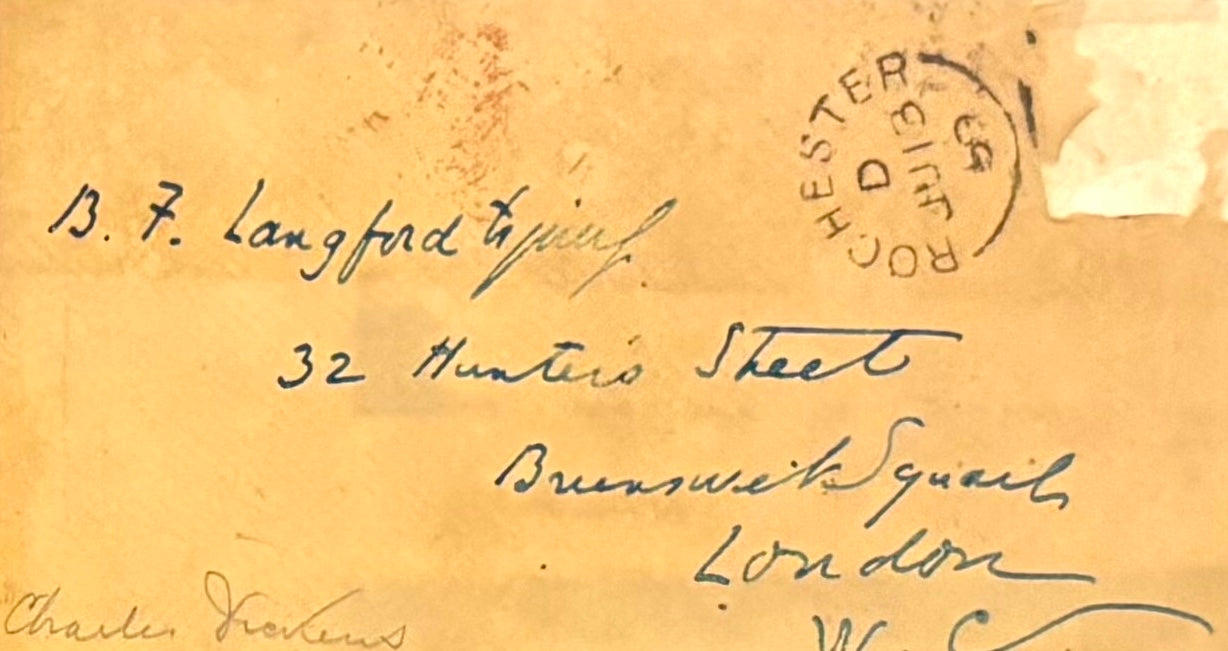 ROCHESTER
D
JU 13
69
B. F. Langford Esquire
32 Hunter's Street
Brunswick Square
London
W. C.
Charles Dickens